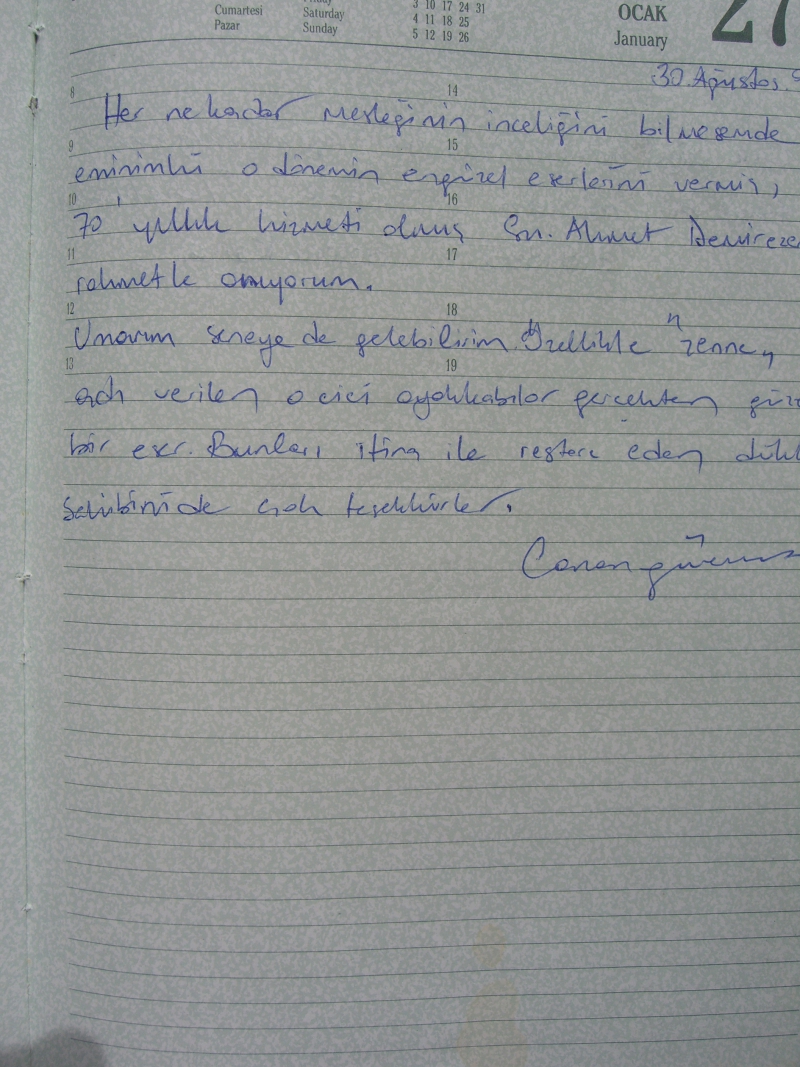 Cumartesi Saturday 4 11 18 25 OCAK 27
Pazar Sunday 5 12 19 26 January
3 10 17 24 31
30 Ağustos
8 14
Her ne kadar mesleğinin inceliğini bilmesemde
9 15
eminimki o dönemin engüzel eserlerini vermiş,
10 16
70 yıllık hizmeti olmuş Sn. Ahmet Demireze
11 17
rahmetle anıyorum.
12 18
Umarım seneye de gelebilirim. Özellikle "zenne"
13 19
adı verilen o cici ayakkabılar gerçekten
bir eser. Bunları itina ile restore eden
sahibinide çok teşekkürler.
Canan